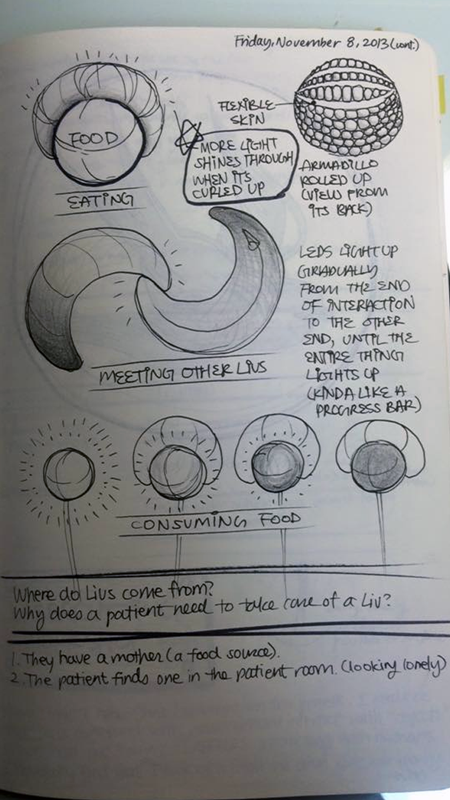 Friday, November 8, 2013 (cont.)
FOOD
EATING
FLEXIBLE
SKIN
MORE LIGHT
SHINES THROUGH
WHEN IT'S
CURLED UP
ARMADILLO
ROLLED UP
(VIEW FROM
ITS BACK)
MEETING OTHER LIVS
LEDS LIGHT UP
GRADUALLY
FROM THE END
OF INTERACTION
TO THE OTHER
END, UNTIL THE
ENTIRE THING
LIGHTS UP
(KINDA LIKE A
PROGRESS BAR)
CONSUMING FOOD
Where do Livs come from?
Why does a patient need to take care of a Liv?
1. They have a mother (a food source).
2. The patient finds one in the patient room. (looking lonely)